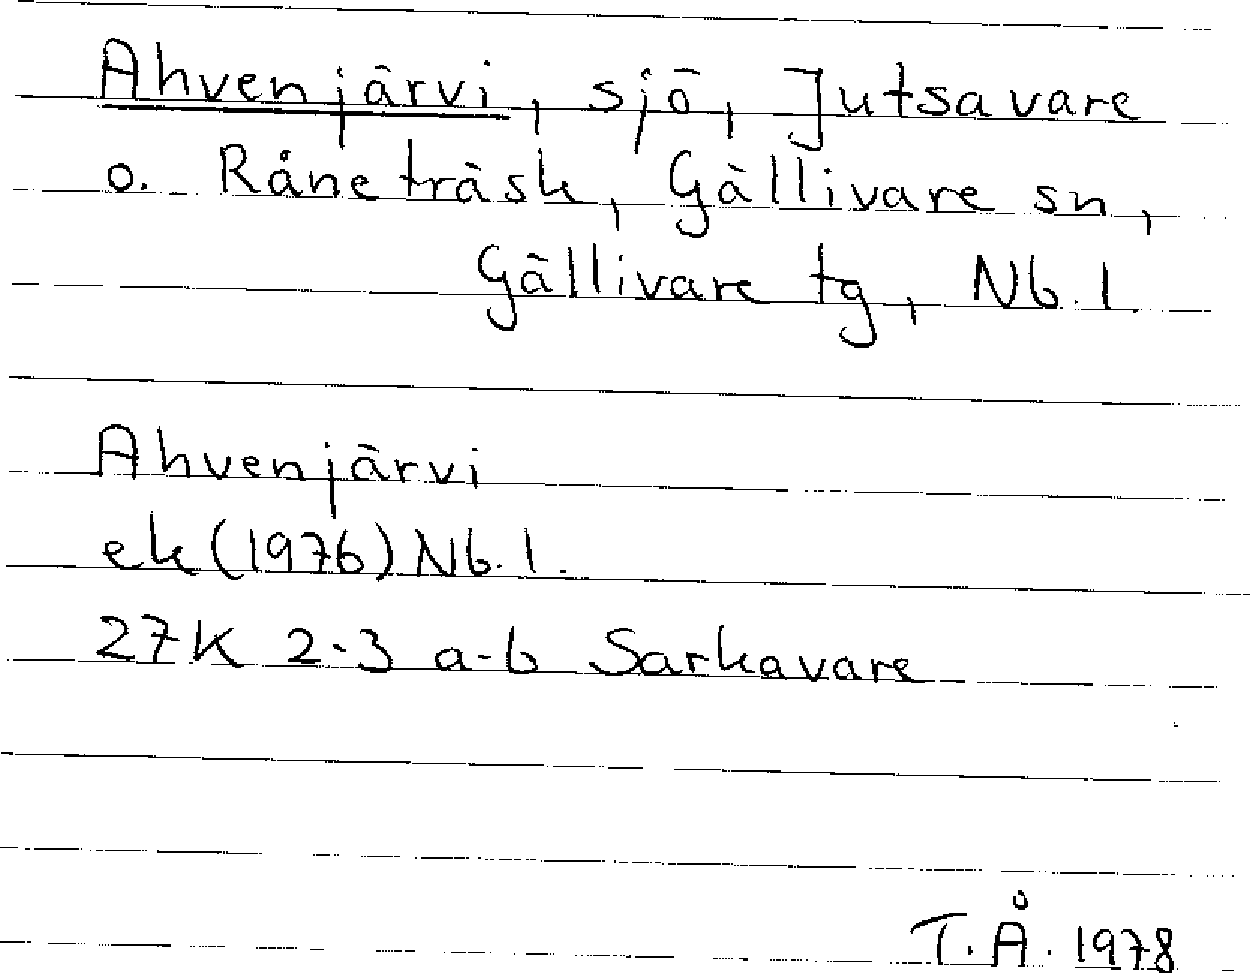 Ahvenjärvi, sjö, Jutsavare
o. Råneträsk, Gällivare sn,
Gällivare tg, Nb. l.
Ahvenjärvi
ek (1976) Nb. l.
27K 2-3 a-b Sarkavare
T.Å. 1978